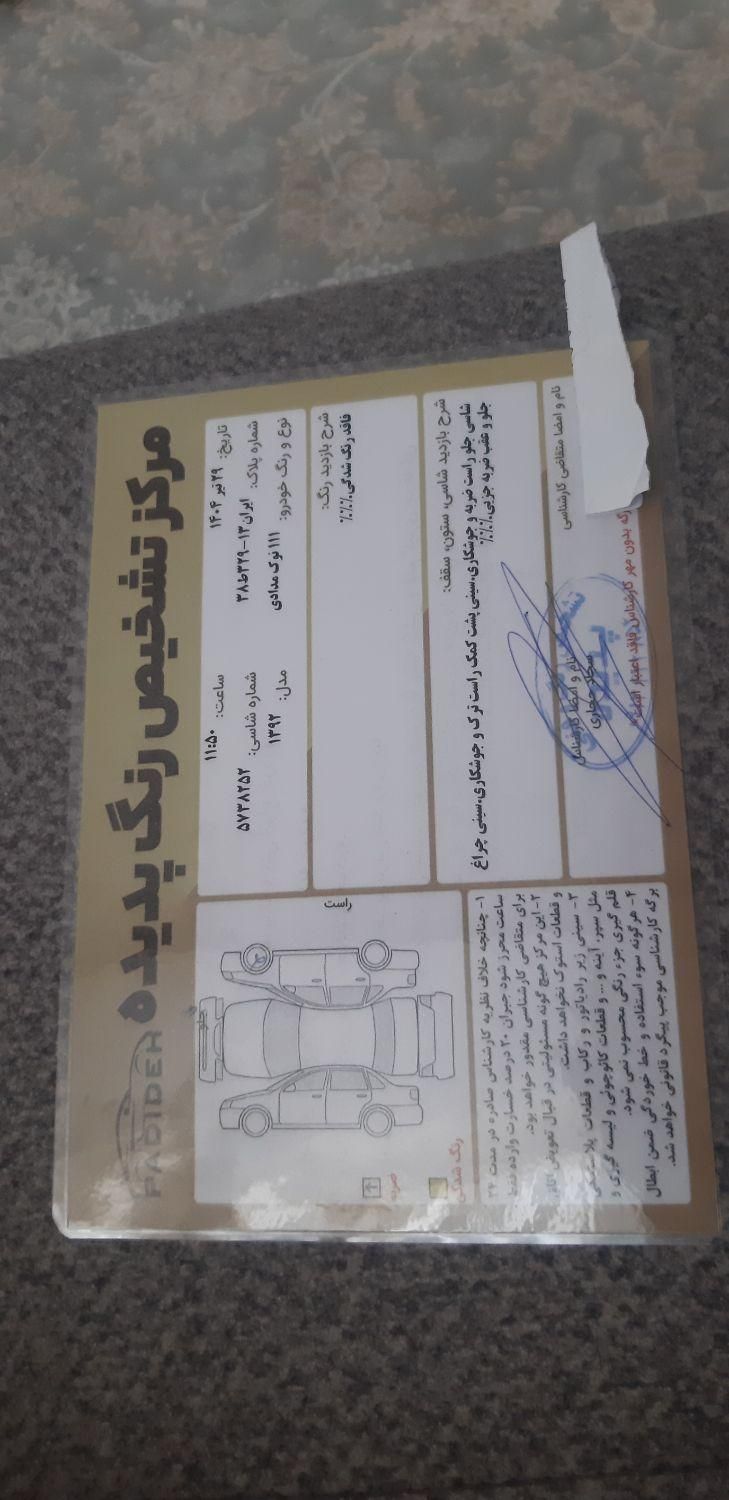 مرکز تشخیص رنگ پدیده
PADIDEH
تاریخ: ۲۹ تیر ۱۴۰۴
ساعت: ۱۱:۵۰
شماره پلاک: ایران ۱۳-۳۲۹ط۳۸
شماره شاسی: ۵۷۳۸۲۵۲
نوع و رنگ خودرو: ۱۱۱ نوک مدادی
مدل: ۱۳۹۲
شرح بازدید رنگ:
فاقد رنگ شدگی٪٪٪
شرح بازدید شاسی، ستون، سقف:
شاسی جلو راست ضربه و جوشکاری،سینی پشت کمک راست ترک و جوشکاری،سینی چراغ
جلو و عقب ضربه جزیی٪٪٪
نام و امضا متقاضی کارشناسی
نام و امضا کارشناس
سجاد حجاری
بدون مهر کارشناس فاقد اعتبار است
راست
ضربه
رنگ شدگی
۱- چنانچه خلاف نظریه کارشناس صادره در مدت ۲۴
ساعت محرز شود جبران ۲۰ درصد خسارت وارده فقط
برای متقاضی کارشناسی مقدور خواهد بود.
۲- این مرکز هیچ گونه مسئولیتی در قبال تعویض اتاق
و قطعات استوک نخواهد داشت.
۳- سینی زیر رادیاتور و رکاب و قطعات پلاستیکی
مثل سپر، آینه و... و قطعات کائوچویی و لیسه گیری و
قلم گیری جزء رنگی محسوب نمی شود.
۴- هرگونه سوء استفاده و خط خوردگی ضمن ابطال
برگه کارشناسی موجب پیگرد قانونی خواهد شد.